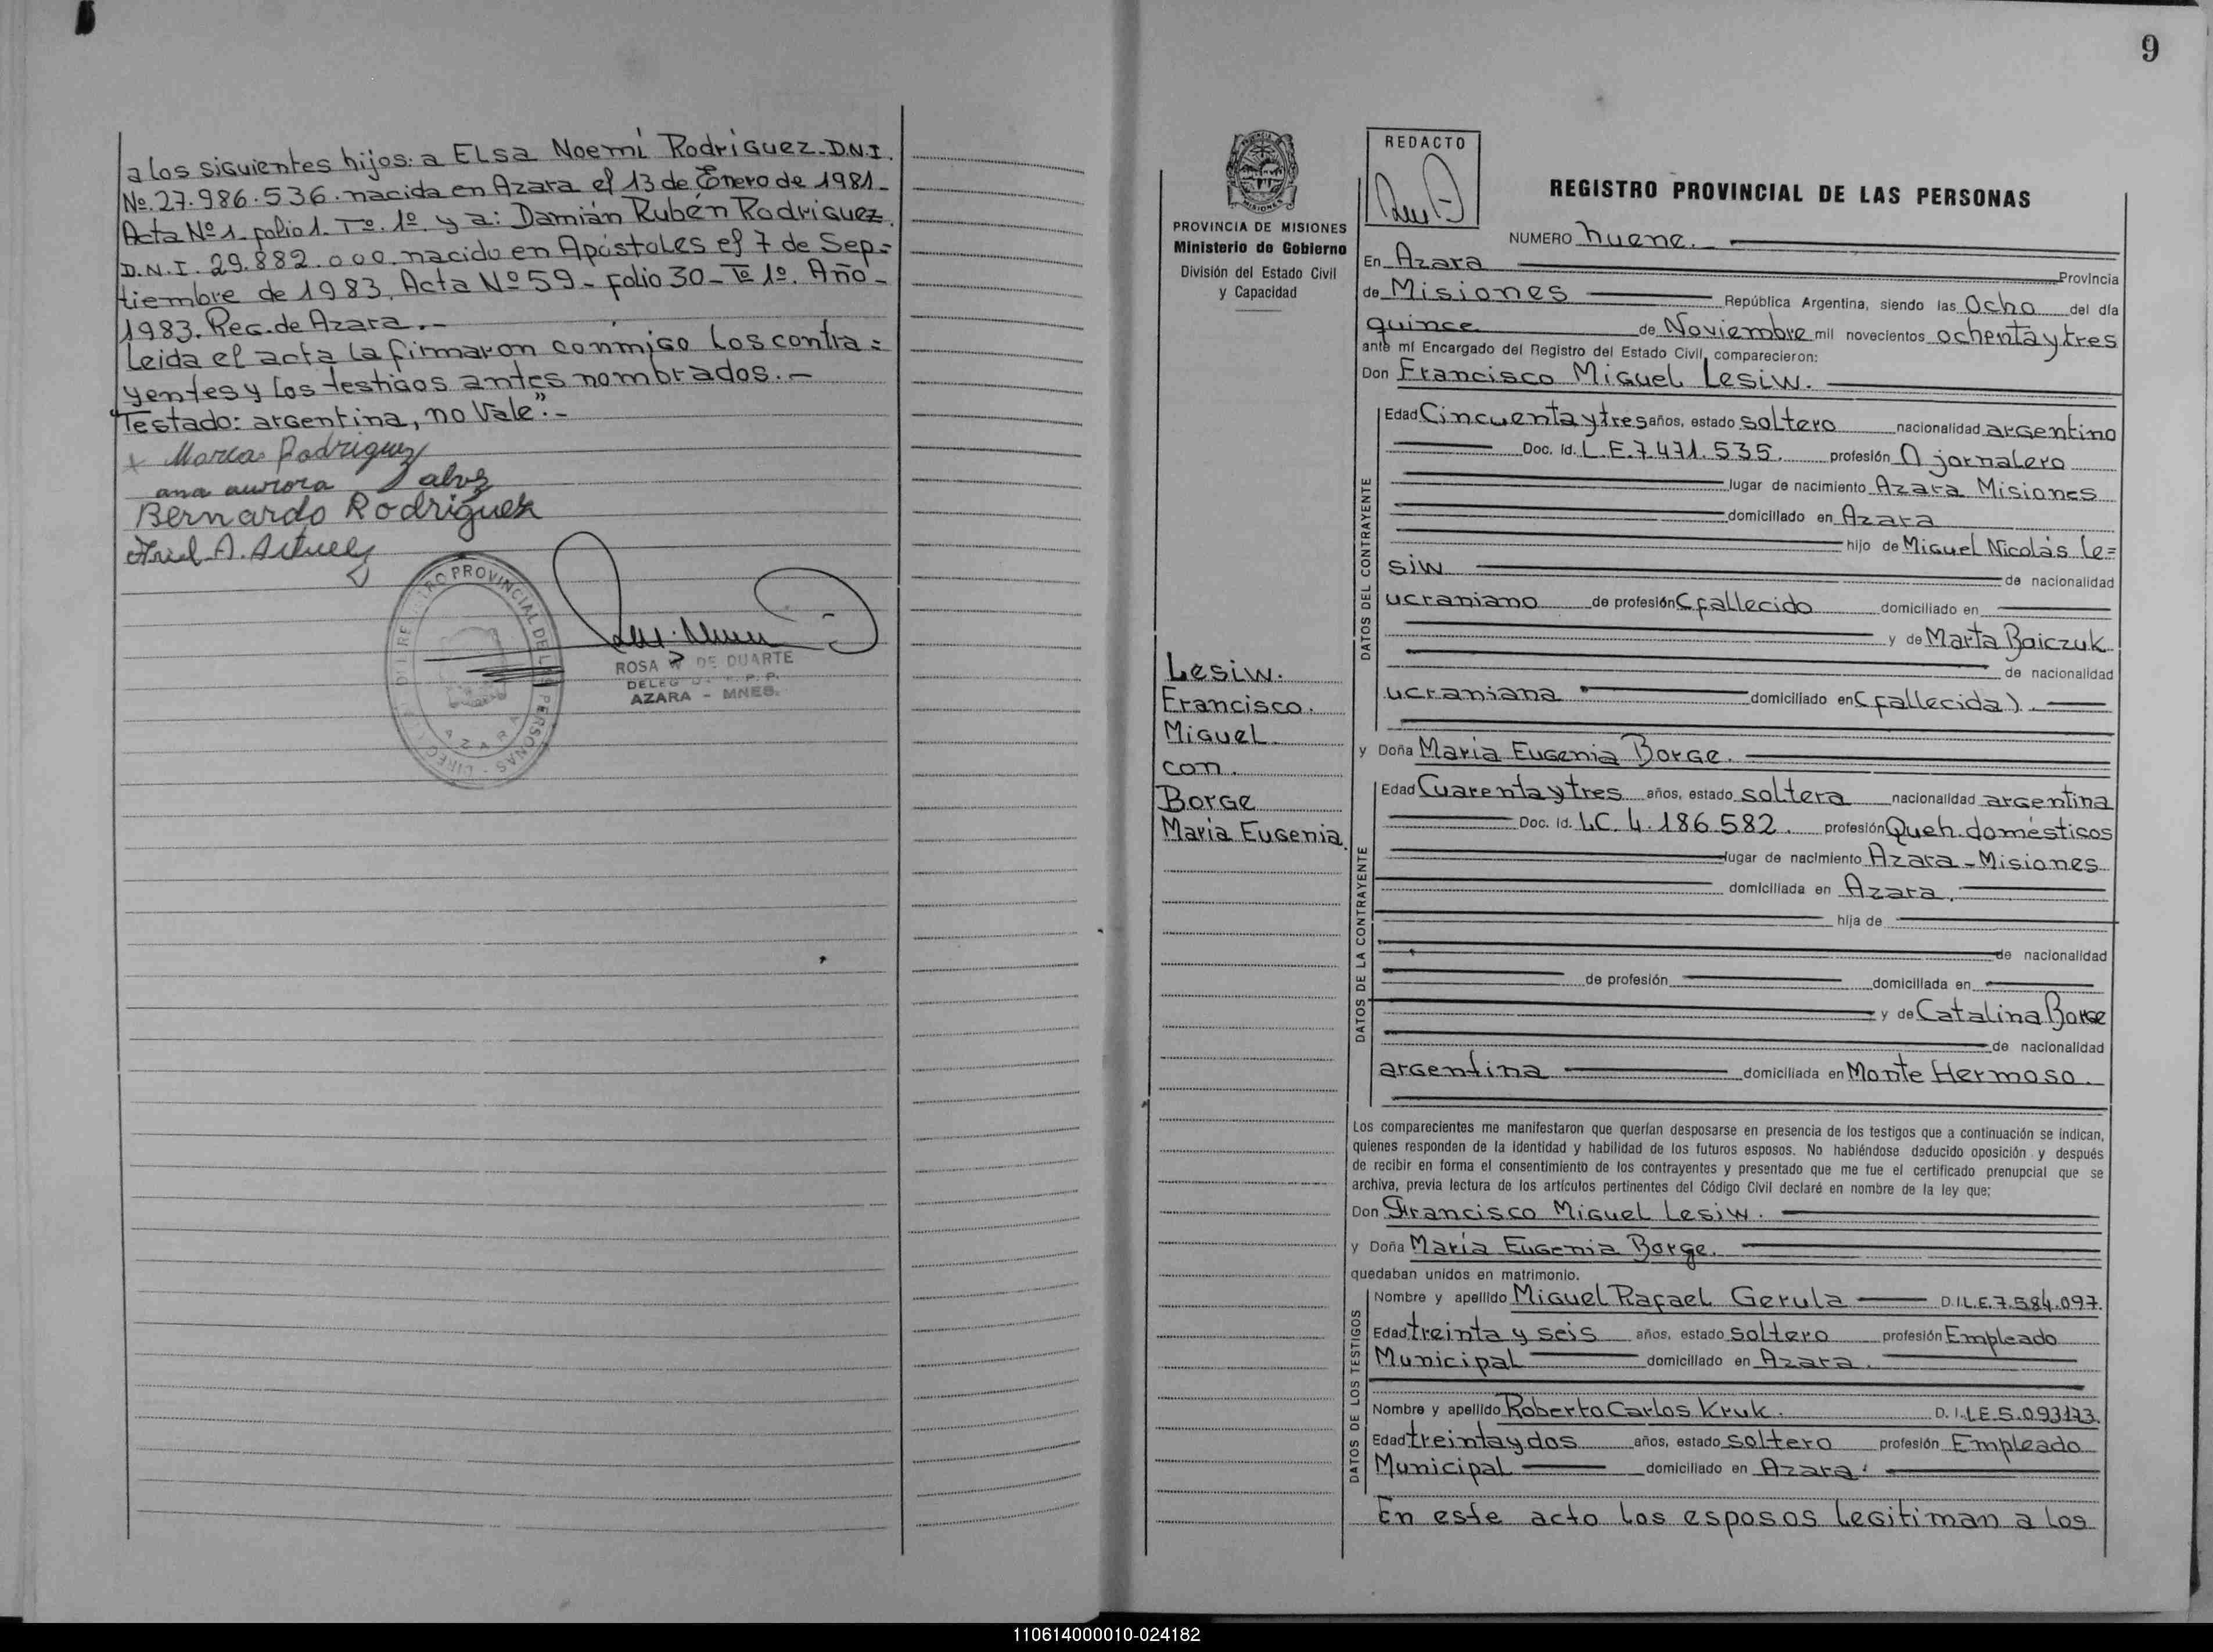 a los siguientes hijos: a Elsa Noemí Rodriguez - D.N.I.
Nº. 27.986.536. nacida en Azara el 13 de Enero de 1981 -
Acta Nº 1. folio 1. Tº. 1º y a: Damián Rubén Rodriguez.
D.N.I. 29.882.000. nacido en Apóstoles el 7 de Sep=
tiembre de 1983. Acta Nº 59 - folio 30 - Tº 1º. Año -
1983. Reg. de Azara. -
Leida el acta la firmaron conmigo los contra=
yentes y los testigos antes nombrados. -
"Testado: argentina, no Vale". -
x Marcos Rodriguez
ana aurora alvez
Bernardo Rodriguez
REGISTRO PROVINCIAL DE LAS PERSONAS
AZARA
ROSA W DE DUARTE
DELEG R. P. P.
AZARA - MNES.
9
PROVINCIA DE MISIONES
Ministerio de Gobierno
División del Estado Civil
y Capacidad
Lesiw.
Francisco.
Miguel
con.
Borge
María Eugenia.
REDACTO
REGISTRO PROVINCIAL DE LAS PERSONAS
NUMERO nueve.
En Azara Provincia
de Misiones República Argentina, siendo las Ocho del día
quince de Noviembre mil novecientos ochenta y tres
ante mí Encargado del Registro del Estado Civil, comparecieron:
Don Francisco Miguel Lesiw.
DATOS DEL CONTRAYENTE
Edad Cincuenta y tres años, estado soltero nacionalidad argentino
Doc. Id. L.E. 7.471.535. profesión jornalero
lugar de nacimiento Azara Misiones
domiciliado en Azara
hijo de Miguel Nicolás Le=
siw de nacionalidad
ucraniano de profesión (fallecido domiciliado en
y de Marta Baiczuk
de nacionalidad
ucraniana domiciliado en (fallecida).
y Doña María Eugenia Borge.
DATOS DE LA CONTRAYENTE
Edad Cuarenta y tres años, estado soltera nacionalidad argentina
Doc. Id. L.C. 4.186.582. profesión Queh. domésticos
lugar de nacimiento Azara - Misiones
domiciliada en Azara.
hija de
de nacionalidad
de profesión domiciliada en
y de Catalina Borge
de nacionalidad
argentina domiciliada en Monte Hermoso.
Los comparecientes me manifestaron que querían desposarse en presencia de los testigos que a continuación se indican,
quienes responden de la identidad y habilidad de los futuros esposos. No habiéndose deducido oposición y después
de recibir en forma el consentimiento de los contrayentes y presentado que me fue el certificado prenupcial que se
archiva, previa lectura de los artículos pertinentes del Código Civil declaré en nombre de la ley que;
Don Francisco Miguel Lesiw.
y Doña María Eugenia Borge.
quedaban unidos en matrimonio.
DATOS DE LOS TESTIGOS
Nombre y apellido Miguel Rafael Gerula D.I.L.E. 7.584.097.
Edad treinta y seis años, estado soltero profesión Empleado
Municipal domiciliado en Azara.
Nombre y apellido Roberto Carlos Kruk. D.I.L.E. 5.093173.
Edad treinta y dos años, estado soltero profesión Empleado
Municipal domiciliado en Azara.
En este acto los esposos legitiman a los
110614000010-024182